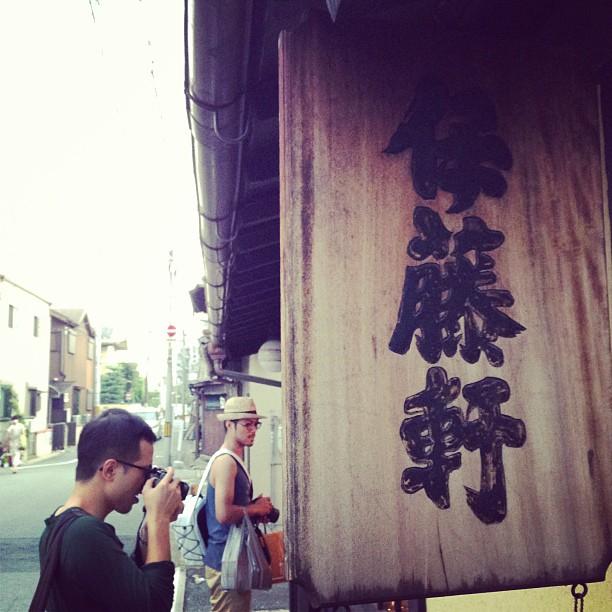 伊藤軒